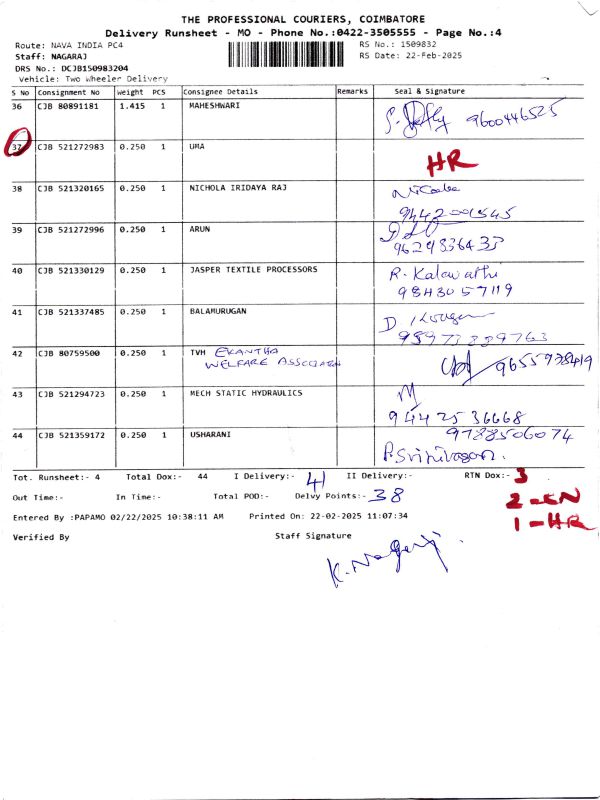 THE PROFESSIONAL COURIERS, COIMBATORE
Delivery Runsheet - MO - Phone No.:0422-3505555 - Page No.:4
Route: NAVA INDIA PC4
RS No.: 1509832
Staff: NAGARAJ
RS Date: 22-Feb-2025
DRS No.: DCJB150983204
Vehicle: Two Wheeler Delivery
S No Consignment No Weight PCS Consignee Details Remarks Seal & Signature
36 CJB 80891181 1.415 1 MAHESHWARI 9600446525
37 CJB 521272983 0.250 1 UMA HR
38 CJB 521320165 0.250 1 NICHOLA IRIDAYA RAJ
9442001545
39 CJB 521272996 0.250 1 ARUN
9629836433
40 CJB 521330129 0.250 1 JASPER TEXTILE PROCESSORS R. Kalawathi
9843057119
41 CJB 521337485 0.250 1 BALAMURUGAN
42 CJB 80759500 0.250 1 TVH EKANTHA
WELFARE ASSOCIATION 9655938419
43 CJB 521294723 0.250 1 MECH STATIC HYDRAULICS M
9442536668
44 CJB 521359172 0.250 1 USHARANI 9788506074
P. Srinivasan.
Tot. Runsheet:- 4 Total Dox:- 44 I Delivery:- 41 II Delivery:- RTN Dox:- 3
Out Time:- In Time:- Total POD:- Delvy Points:- 38
2-CN
1-HR
Entered By :PAPAMO 02/22/2025 10:38:11 AM Printed On: 22-02-2025 11:07:34
Verified By Staff Signature
K. Nagaraj.